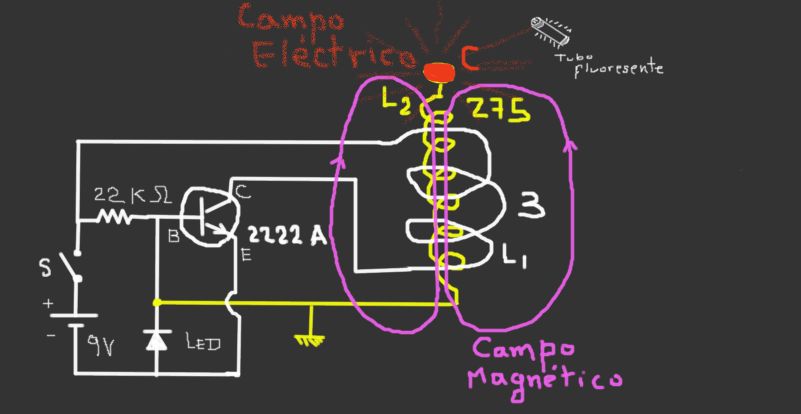 Campo
Eléctrico
C
Tubo
fluoresente
L2
275
22KΩ
C
B
2222A
E
3
L1
S
+
-
9V
LED
Campo
Magnético